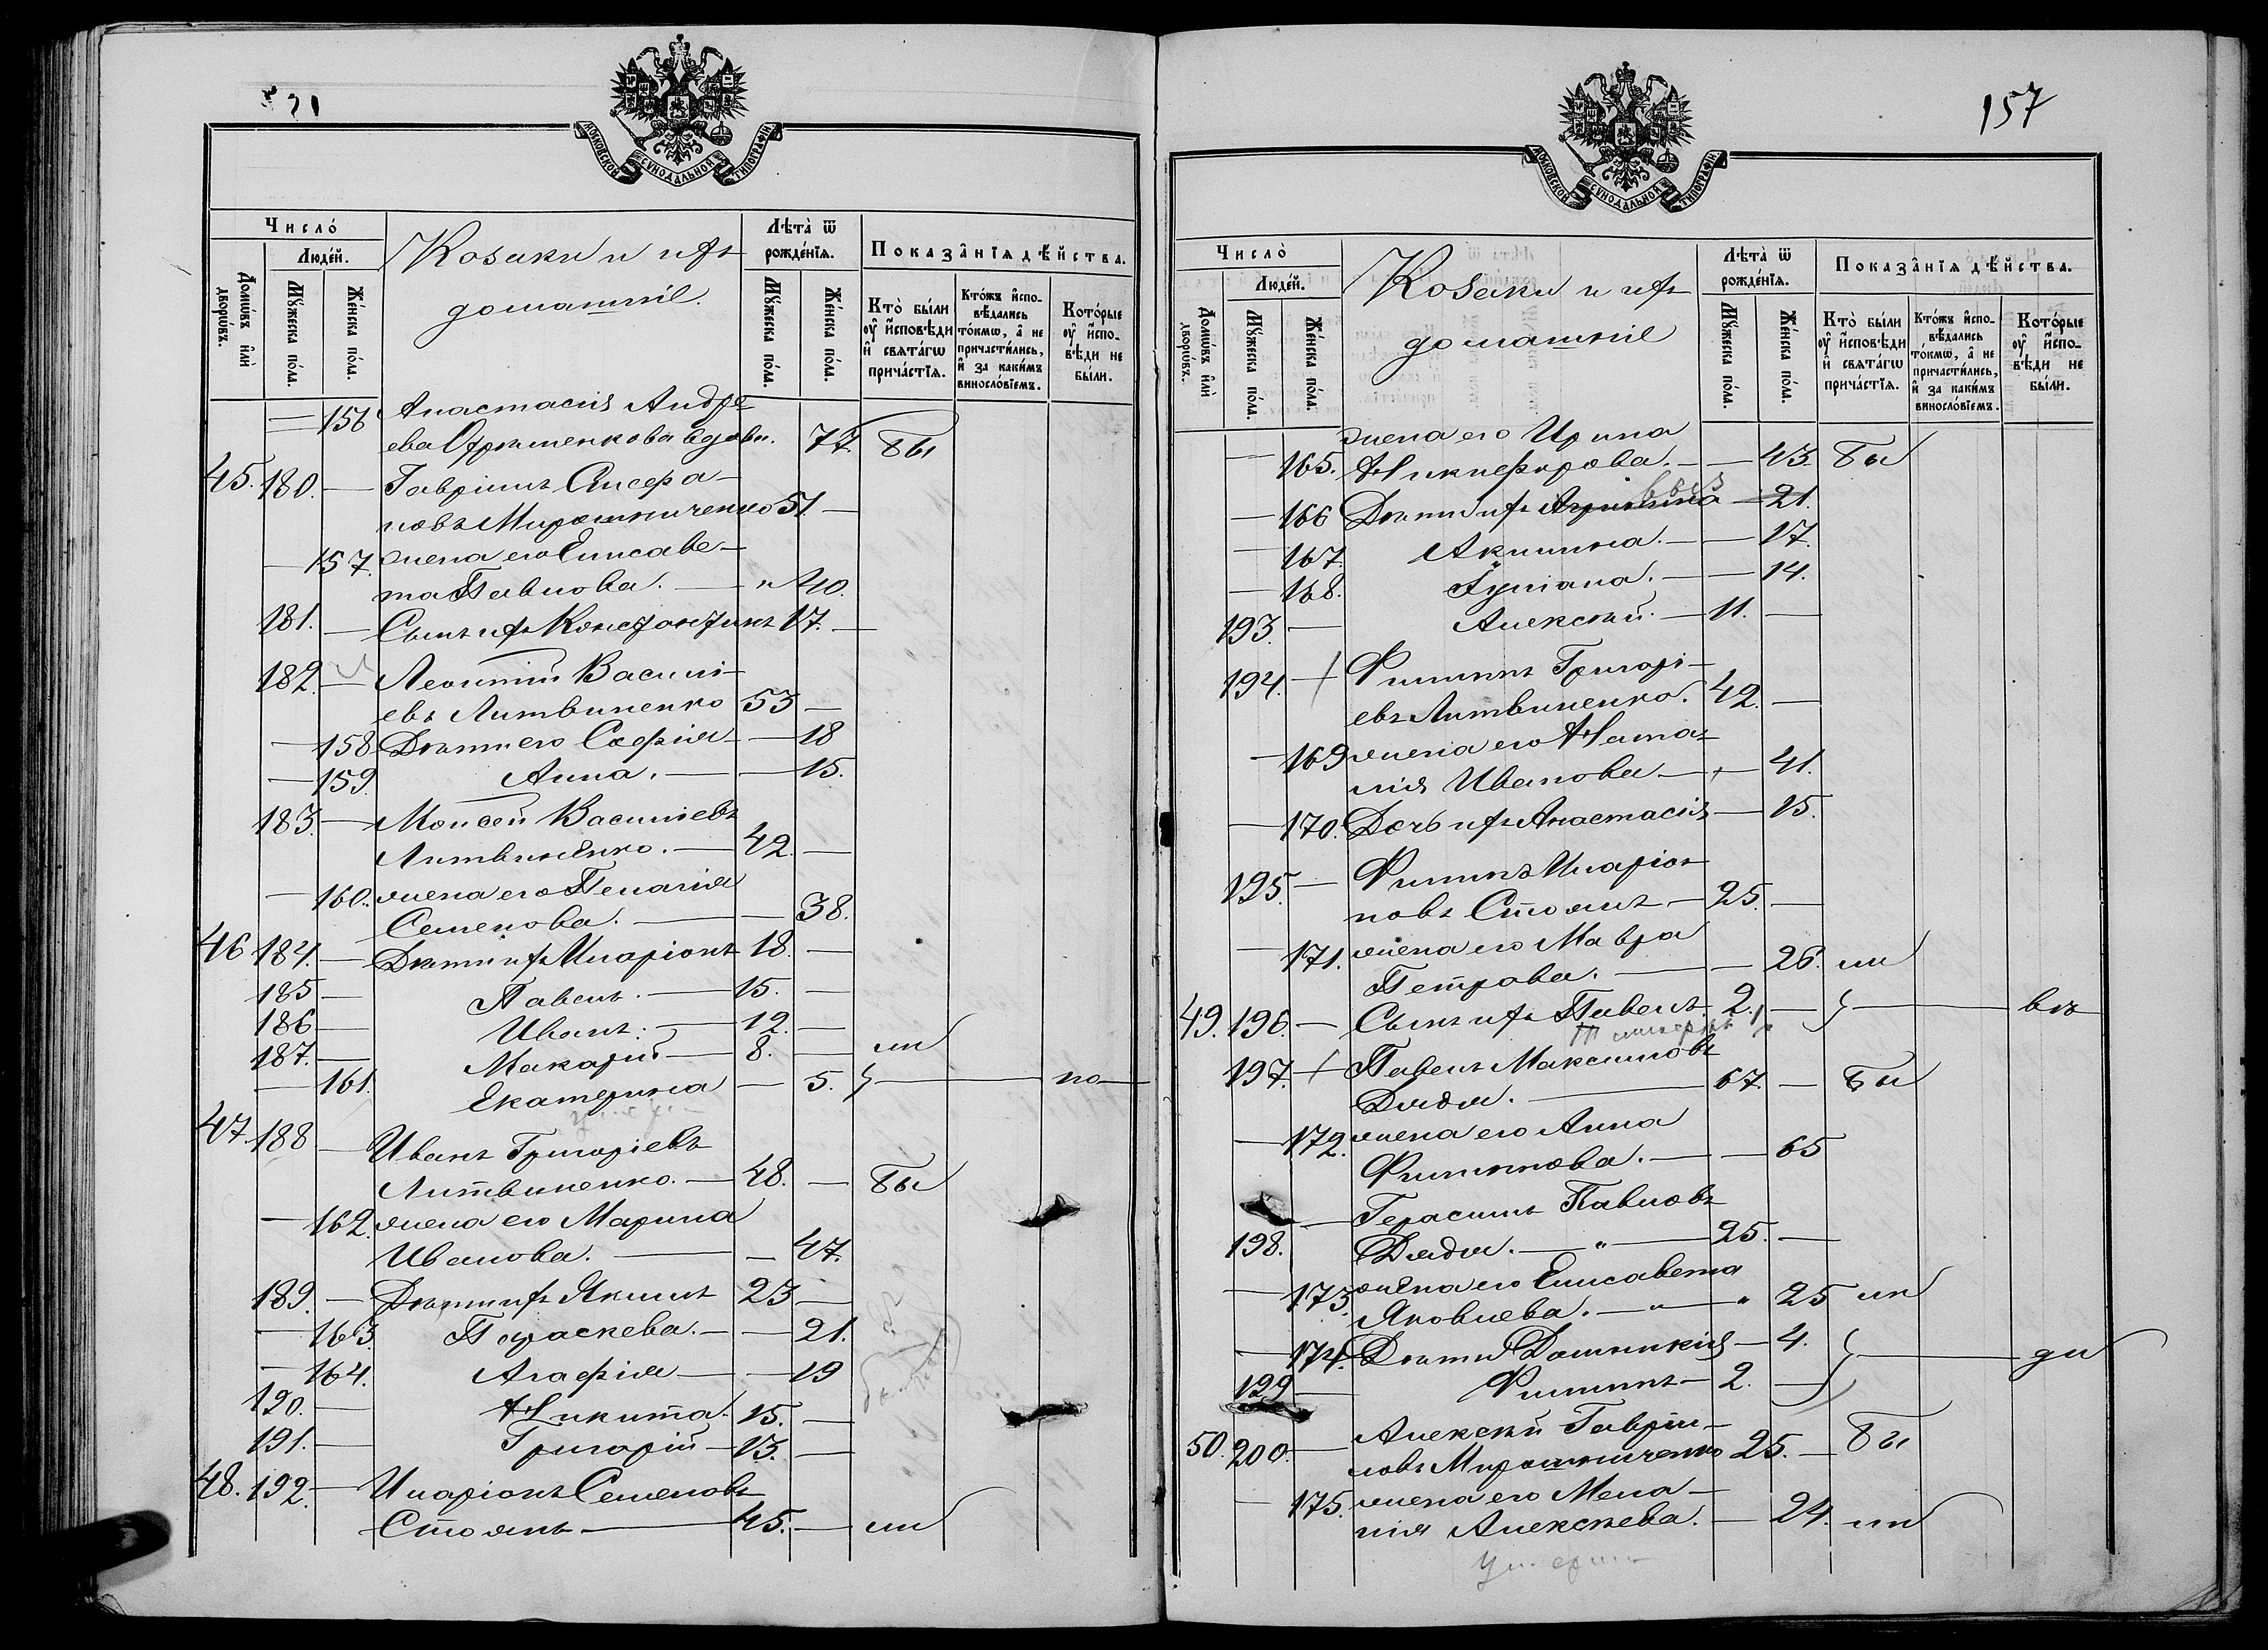 157
МОСКОВСКОЙ СУНОДАЛЬНОЙ ТИПОГРАФІИ.
Число̀
Люде́й.
Домѡ́въ и҆лѝ дворѡ́въ.
Мꙋ́жеска по́ла.
Же́нска по́ла.
Козаки и ихъ
домашніе.
Лѣ́та ѿ рожде́нїѧ.
Мꙋ́жеска по́ла.
Же́нска по́ла.
Показа̑нїѧ дѣ́йства.
Кто̀ бы́ли оу҆ и҆сповѣди и҆ свѧта́гѡ причастїѧ.
Кто́жъ и҆сповѣдались то́кмѡ, а҆ не причасти́лись, и҆ за каки́мъ винослóвїемъ.
Кото́рые оу҆ и҆сповѣди не бы́ли.
— 156 Анастасія Андре-
ева Ефименкова вдова. 77. бы
45. 180. — Гавріилъ Ансефа-
новъ Мирошниченко 51 —
— 157. жена его Елисаве-
та Павлова. — " 40.
181. — Сынъ ихъ Константинъ 17. —
182. — Леонтій Василі-
евъ Литвиненко 53 —
— 158 Дѣти его Софія — 18
— 159. Анна. — 15.
183. — Моисей Василіевъ
Литвиненко. — 42. —
— 160. жена его Пелагія
Семенова. — 38.
46 184. — Дѣти ихъ Иларіонъ 18. —
185 — Павелъ. — 15. —
186 — Иванъ. — 12. —
187. — Макарій — 8. — ли
— 161. Екатерина — 5. } — по
47. 188 — Иванъ Григоріевъ
Литвиненко. — 48. — бы
— 162. жена его Марина
Иванова. — 47.
189. — Дѣти ихъ Якимъ 23 —
— 163 Параскева. — 21.
— 164. Агафія — 19
190. — Никита. 15. —
191. — Григорій — 13. —
48. 192. — Иларіонъ Семеновъ
Стоянъ — 45. — ли
МОСКОВСКОЙ СУНОДАЛЬНОЙ ТИПОГРАФІИ.
Число̀
Люде́й.
Домѡ́въ и҆лѝ дворѡ́въ.
Мꙋ́жеска по́ла.
Же́нска по́ла.
Козаки и ихъ
домашніе
Лѣ́та ѿ рожде́нїѧ.
Мꙋ́жеска по́ла.
Же́нска по́ла.
Показа̑нїѧ дѣ́йства.
Кто̀ бы́ли оу҆ и҆сповѣди и҆ свѧта́гѡ причастїѧ.
Кто́жъ и҆сповѣдались то́кмѡ, а҆ не причасти́лись, и҆ за каки́мъ винослóвїемъ.
Кото́рые оу҆ и҆сповѣди не бы́ли.
жена его Ирина
— 165. Никифорова. — 43. бы
— 166 Дѣти ихъ — 21.
— 167. Акилина. — 17.
— 168. Іуліана. — 14.
193. — Алексѣй. — 11. —
194. — Филиппъ Григорі-
евъ Литвиненко. 42. —
— 169 жена его Ната-
лія Иванова — 41.
— 170. Дочь ихъ Анастасія — 15.
195. — Филиппъ Иларіо-
новъ Стоянъ — 25. —
— 171. жена его Мавра
Петрова. — 26. ли
49. 196. — Сынъ ихъ Павелъ. 2. — } — въ
197. — Павелъ Максимовъ
Дядя. — 67. — бы
— 172. жена его Анна
Филиппова. — 65
— Герасимъ Павловъ
198. Дядя. — " — 25. —
— 173. жена его Елисавета
Яковлева. — " — " 25 ли
— 174. Дѣти Домникія — 4. } — ди
199 — Филиппъ — 2. —
50. 200. — Алексѣй Гаврі-
ловъ Мирошниченко 25. — бы
— 175. жена его Мела-
нія Алексѣева. — 24. ли